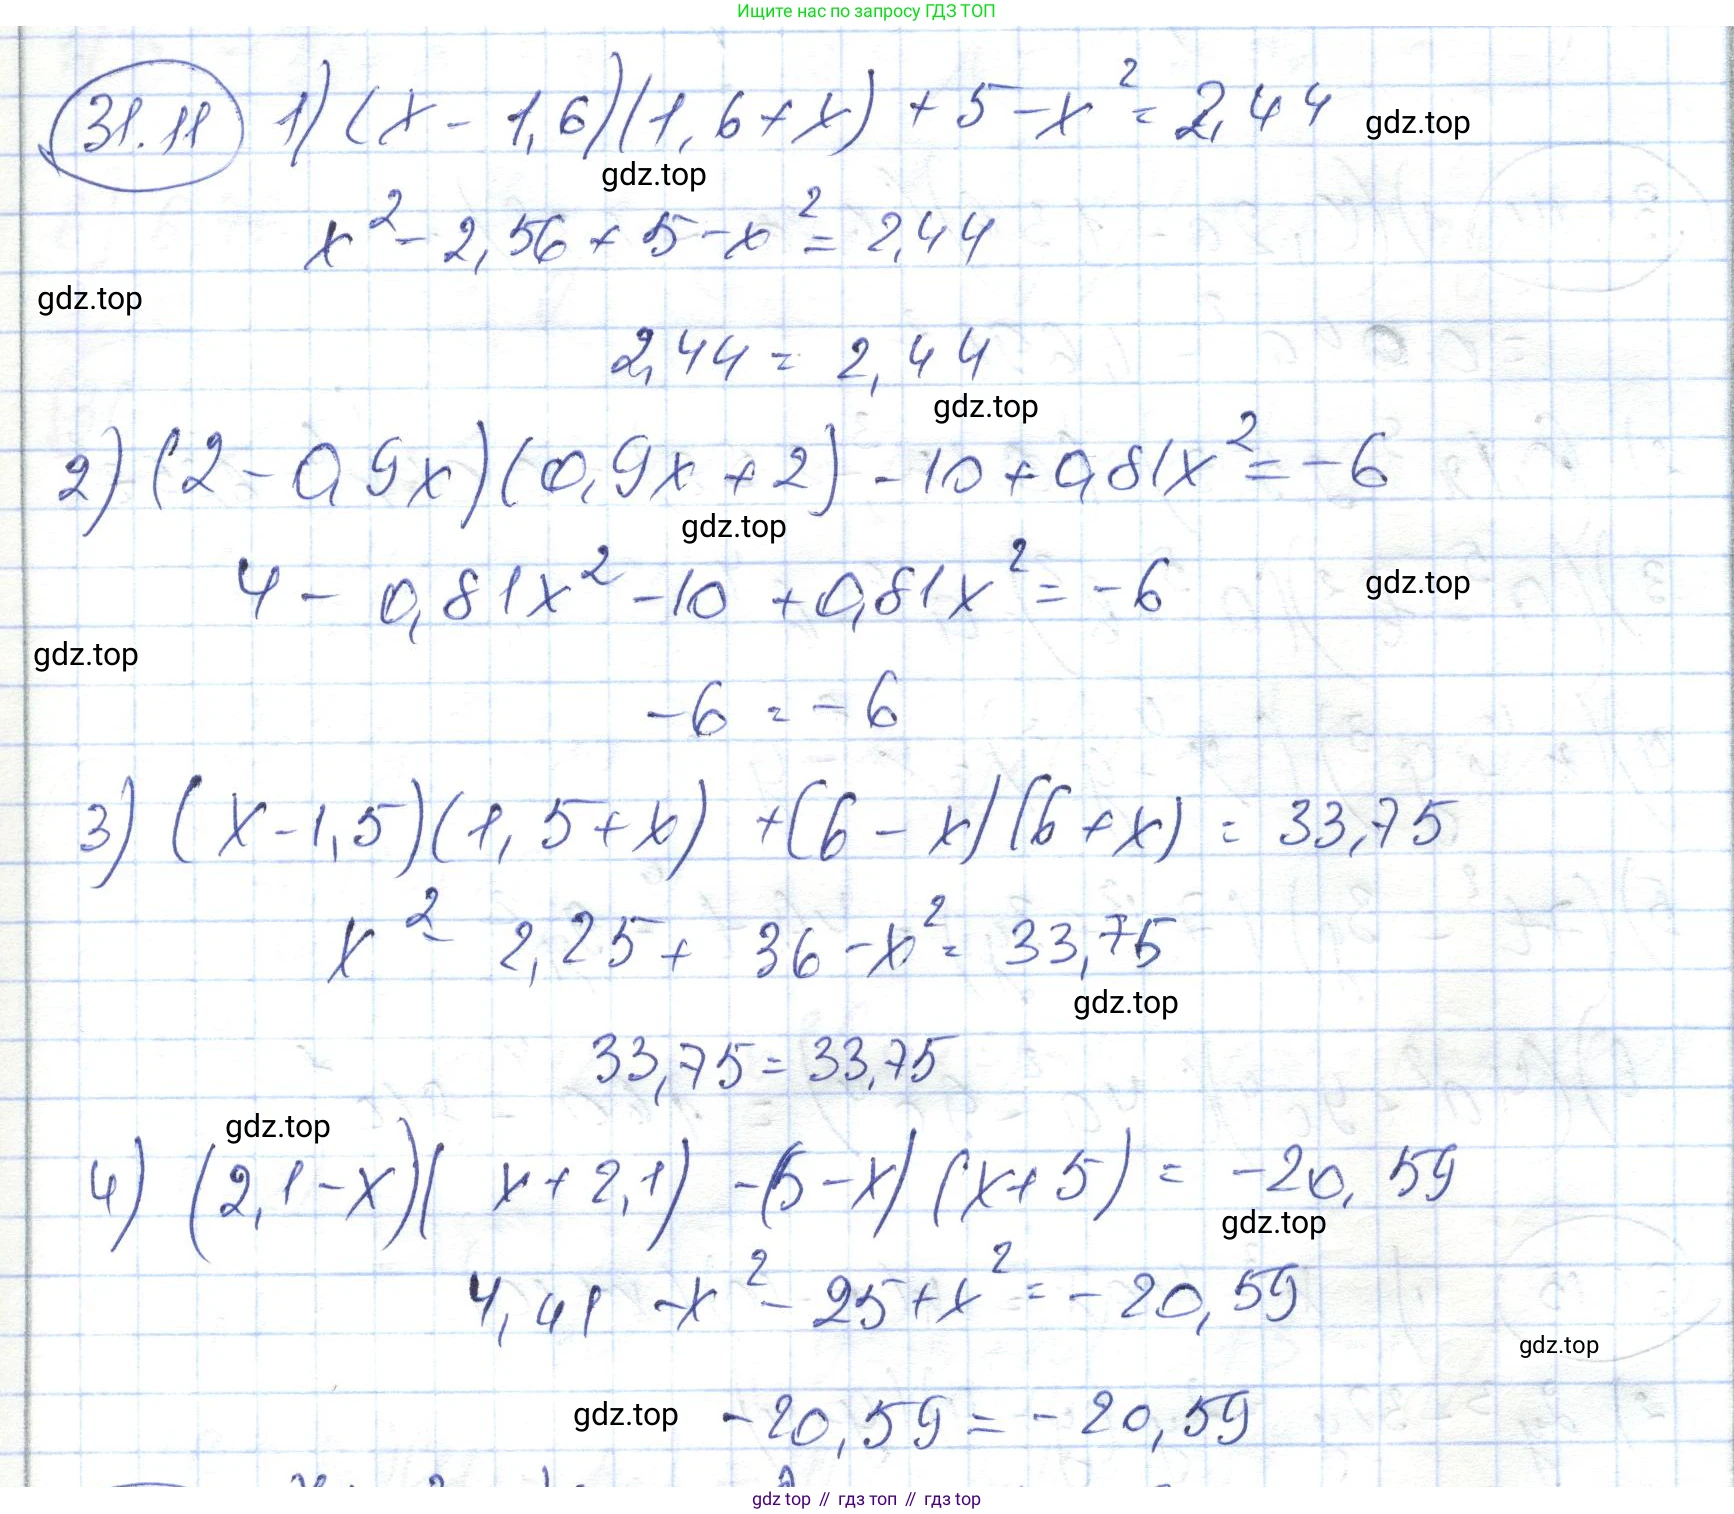 Ищите нас по запросу ГДЗ ТОП
31.11 1) (x - 1,6)(1,6 + x) + 5 - x² = 2,44
gdz.top
gdz.top
x² - 2,56 + 5 - x² = 2,44
gdz.top
2,44 = 2,44
gdz.top
2) (2 - 0,9x)(0,9x + 2) - 10 + 0,81x² = -6
gdz.top
4 - 0,81x² - 10 + 0,81x² = -6
gdz.top
gdz.top
-6 = -6
3) (x - 1,5)(1,5 + x) + (6 - x)(6 + x) = 33,75
x² - 2,25 + 36 - x² = 33,75
gdz.top
33,75 = 33,75
gdz.top
4) (2,1 - x)(x + 2,1) - (5 - x)(x + 5) = -20,59
gdz.top
4,41 - x² - 25 + x² = -20,59
gdz.top
gdz.top
-20,59 = -20,59
gdz top // гдз топ // gdz top